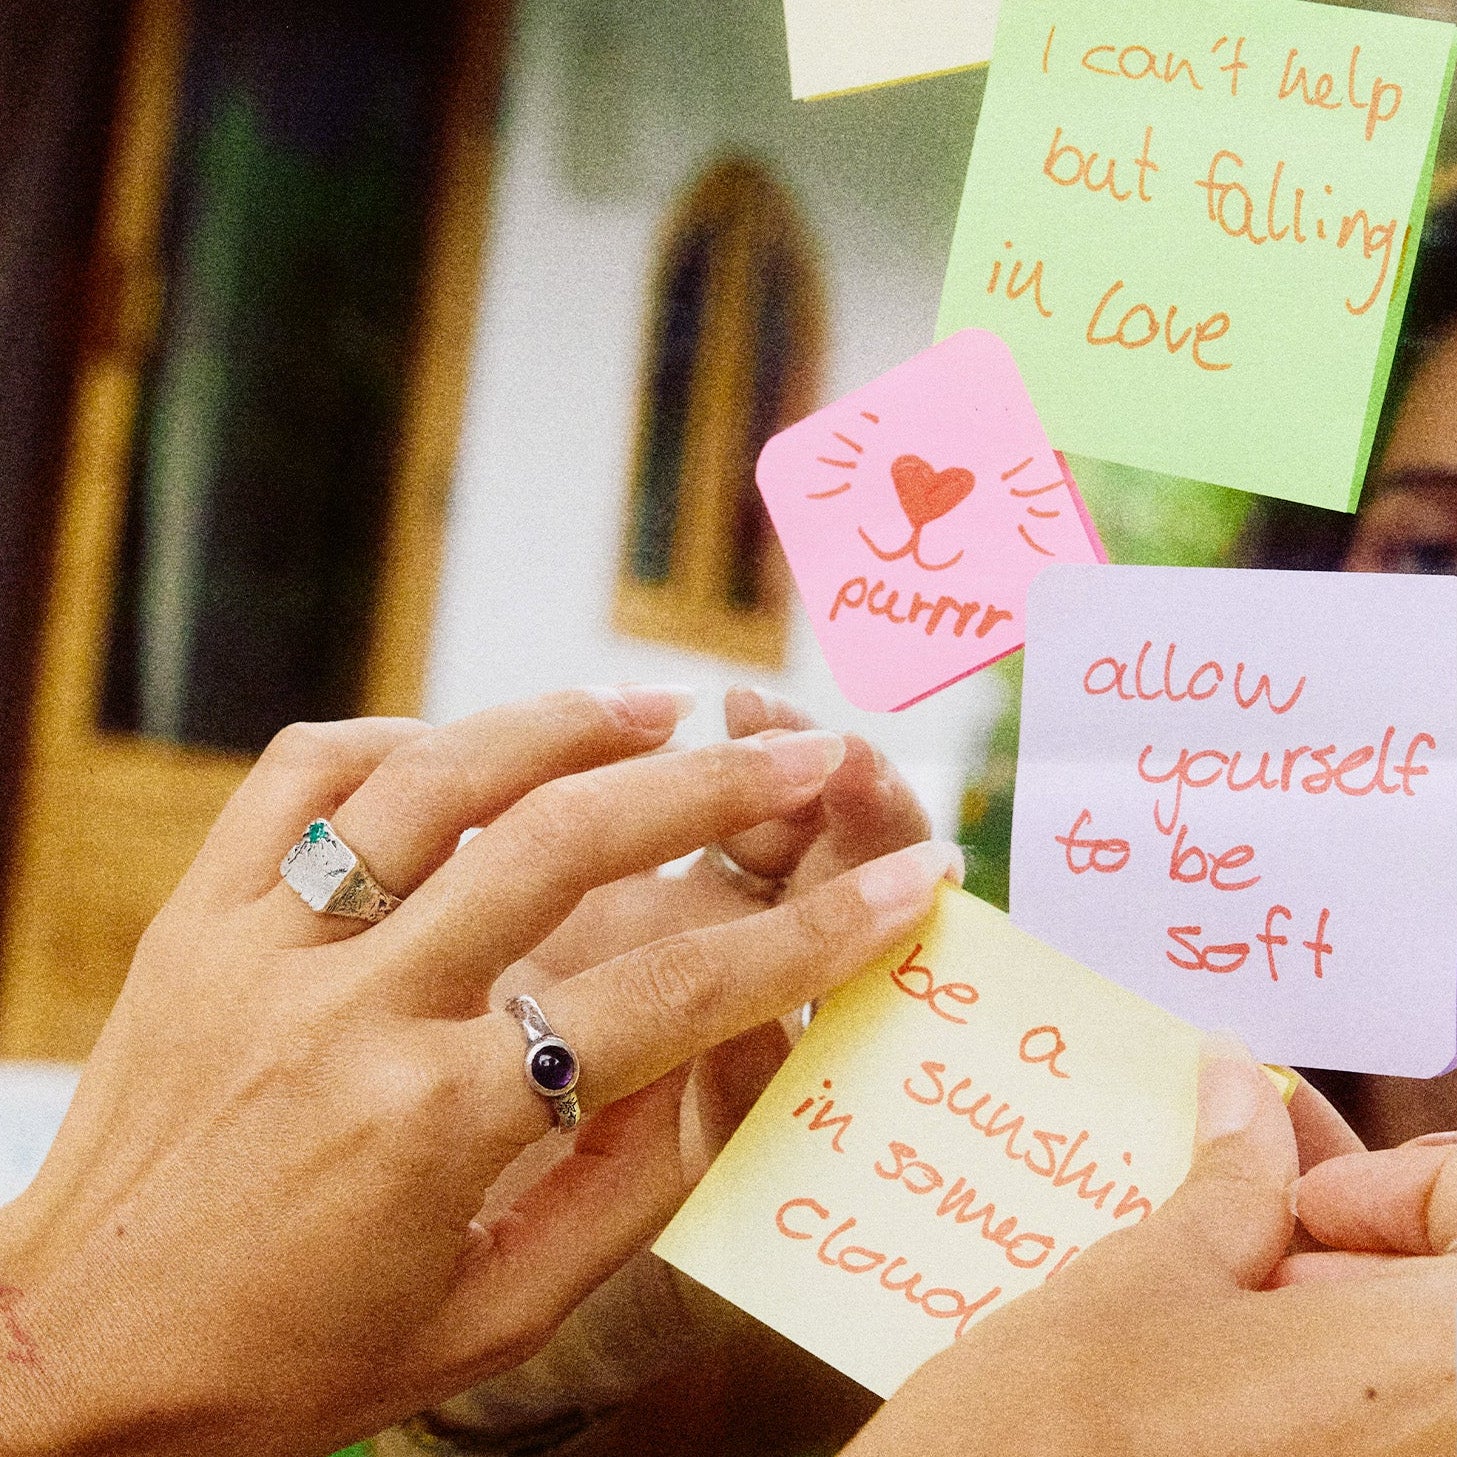 I can't help
but falling
in love
purrrr
allow
yourself
to be
soft
be a
in
cloud